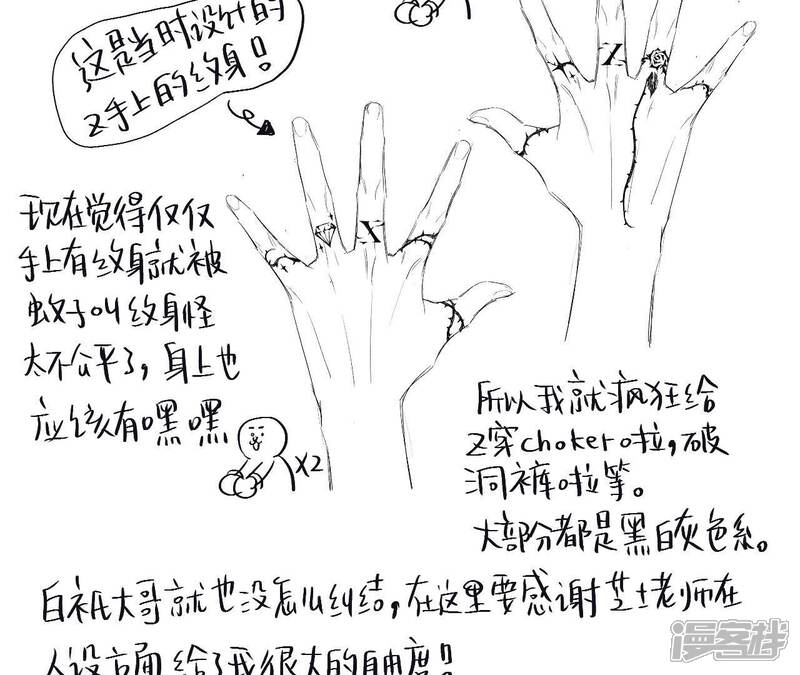 这是当时设计的
Z手上的纹身!!
Z
X
现在觉得仅仅
手上有纹身就被
蚊子叫纹身怪
太不公平了,身上也
应该有嘿嘿
X2
所以我就疯狂给
Z穿choker啦,破
洞裤啦等。
大部分都是黑白灰色系。
白祇大哥就也没怎么纠结,在这里要感谢芝士老师在
人设方面给了我很大的自由度!!
漫客栈